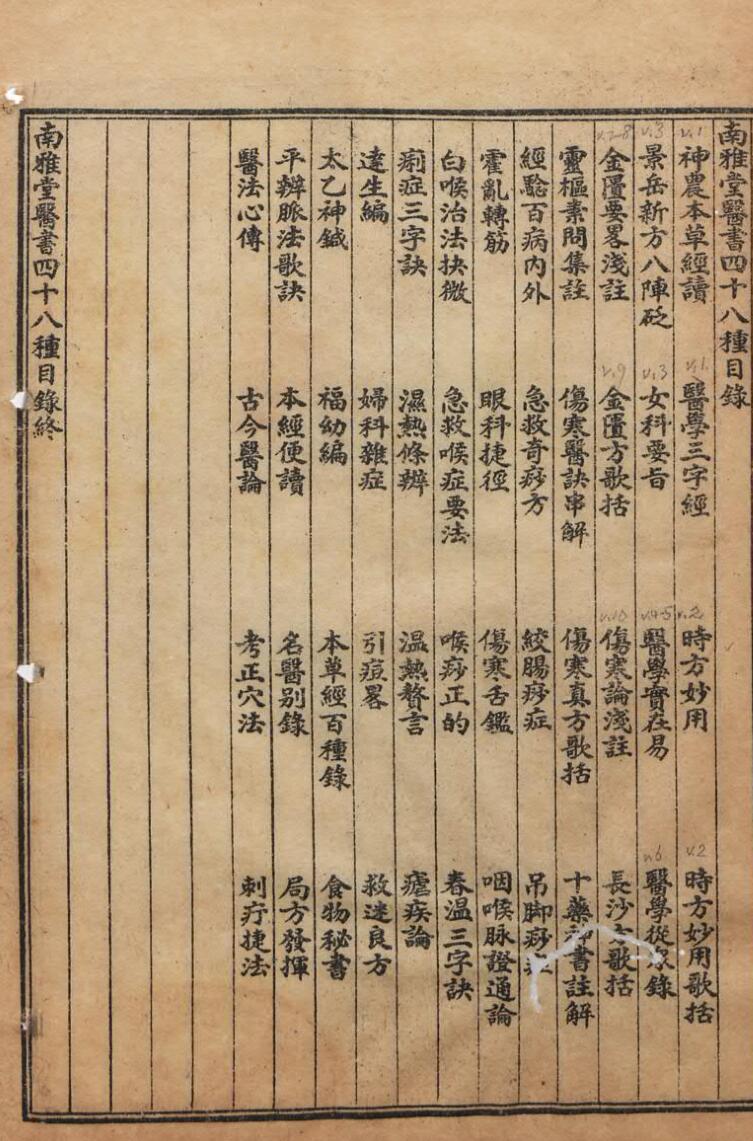 南雅堂醫書四十八種目錄
神農本草經讀 醫學三字經 時方妙用 時方妙用歌括
景岳新方八陣砭 女科要旨 醫學實在易 醫學從眾錄
金匱要畧淺註 金匱方歌括 傷寒論淺註 長沙方歌括
靈樞素問集註 傷寒醫訣串解 傷寒真方歌括 十藥神書註解
經驗百病内外 急救奇痧方 絞腸痧症 吊脚痧症
霍亂轉筋 眼科捷徑 傷寒舌鑑 咽喉脉證通論
白喉治法抉微 急救喉症要法 喉痧正的 春温三字訣
痢症三字訣 濕熱條辨 温熱贅言 瘧疾論
達生編 婦科雜症 引痘畧 救迷良方
太乙神鍼 福幼編 本草經百種錄 食物秘書
平辨脈法歌訣 本經便讀 名醫别錄 局方發揮
醫法心傳 古今醫論 考正穴法 刺疔捷法
南雅堂醫書四十八種目錄終
v.1
v.3
v.7-8
v.1
v.3
v.9
v.2
v.4-5
v.10
v.2
v.6